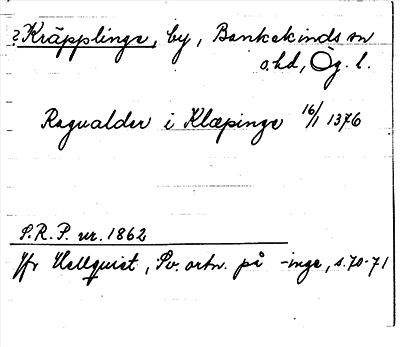 ? Kräpplinge, by, Bankekinds sn
o. hd, Ög. l.
Ragvalder i Klæpinge 16/1 1376
S.R.P. nr. 1862
Jfr Hellquist, Sv. ortn. på -inge, s. 70-71